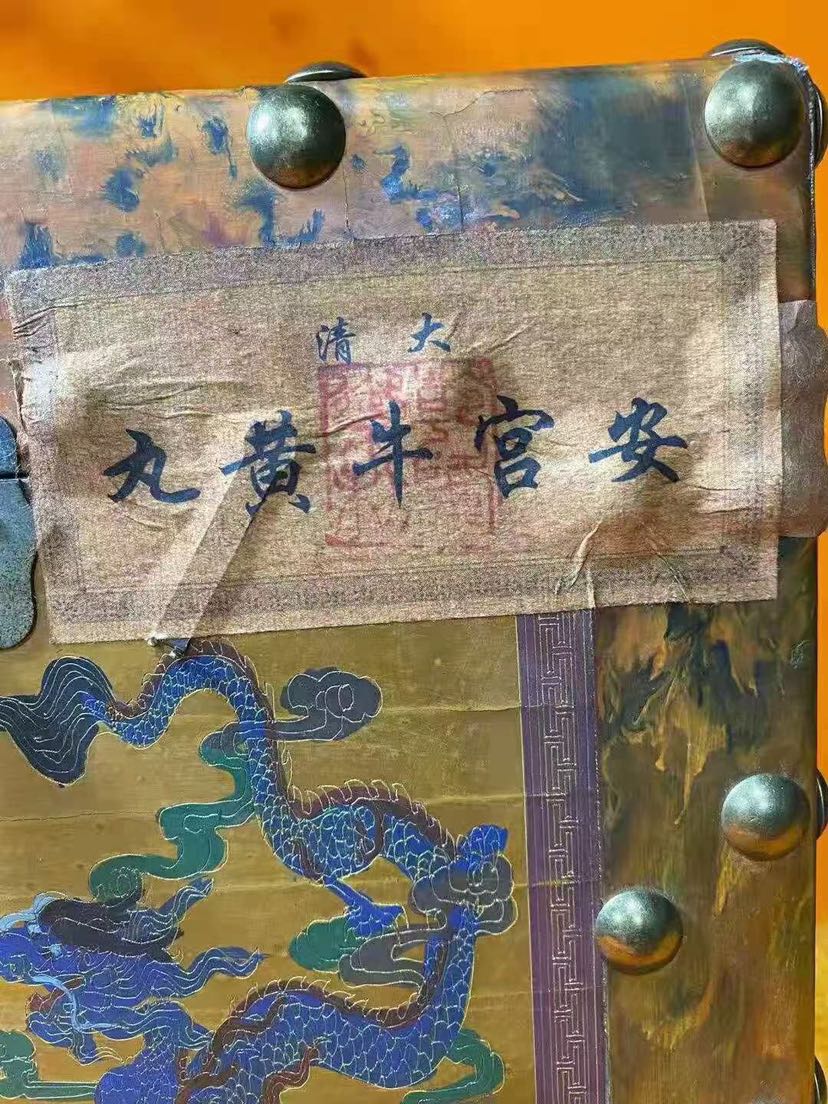 大清
安宫牛黄丸